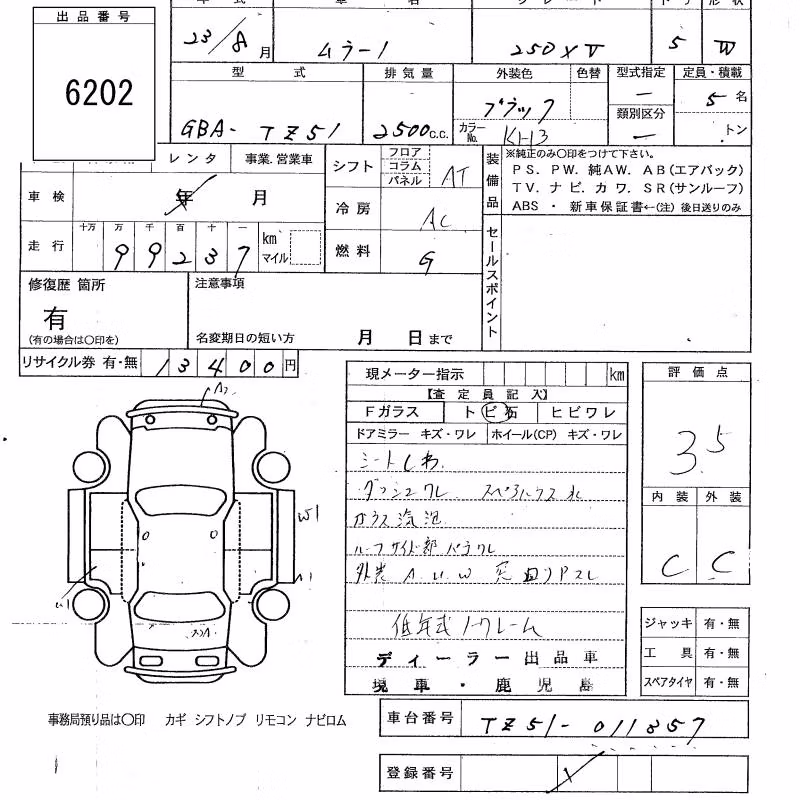 出品番号
6202
23/8 月
ムラーノ
250XV
5
W
型 式
排気量
外装色
色替
型式指定
定員・積載
GBA- TZ51
2500 c.c.
ブラック
カラーNo. KH3
ー
類別区分
ー
5 名
トン
レンタ
事業.営業車
車検
年 月
シフト
フロア
コラム
パネル
AT
冷房
AC
燃料
G
走行
十万 万 千 百 十 一
99237
km
マイル
装備品
※純正のみ〇印をつけて下さい。
PS. PW. 純AW. AB(エアバック)
TV. ナビ. カワ. SR(サンルーフ)
ABS ・ 新車保証書←(注) 後日送りのみ
セールスポイント
修復歴 箇所
有
(有の場合は〇印を)
注意事項
名変期日の短い方 月 日 まで
リサイクル券 有・無
13400 円
現メーター指示 km
【査定員記入】
Fガラス
ト ビ 石
ヒビワレ
ドアミラー キズ・ワレ
ホイール(CP) キズ・ワレ
シートしわ
ガラス気泡
ルーフサイド部
外装 A.U.W
低年式ノークレーム
ディーラー出品車
現車・鹿児島
評価点
3.5
内装
外装
C
C
ジャッキ 有・無
工具 有・無
スペアタイヤ 有・無
A2
W1
U1
事務局預り品は〇印 カギ シフトノブ リモコン ナビロム
車台番号
TZ51-011857
登録番号